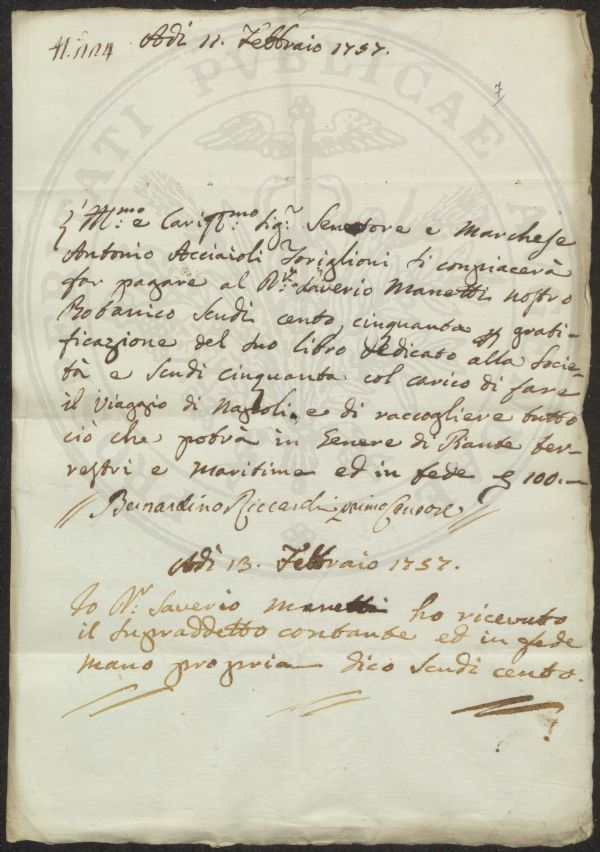 Adì 11. Febbraio 1757.
7
Ill.mo e Cariss.mo Sig.r Senatore e Marchese
Antonio Acciaioli Toriglioni si compiacerà
far pagare al D.r Saverio Manetti nostro
Botanico Scudi cento, cinquanta p grati-
ficazione del suo libro dedicato alla Socie-
tà e Scudi cinquanta col carico di fare
il viaggio di Napoli e di raccogliere tutto
ciò che potrà in Genere di Piante ter-
restri e Maritime ed in fede 100.—
// Bernardino Riccardi primo Censore //
Adì 13. Febbraio 1757.
Io D.r Saverio Manetti ho ricevuto
il Supraddetto contante ed in fede
mano propria dico Scudi cento.